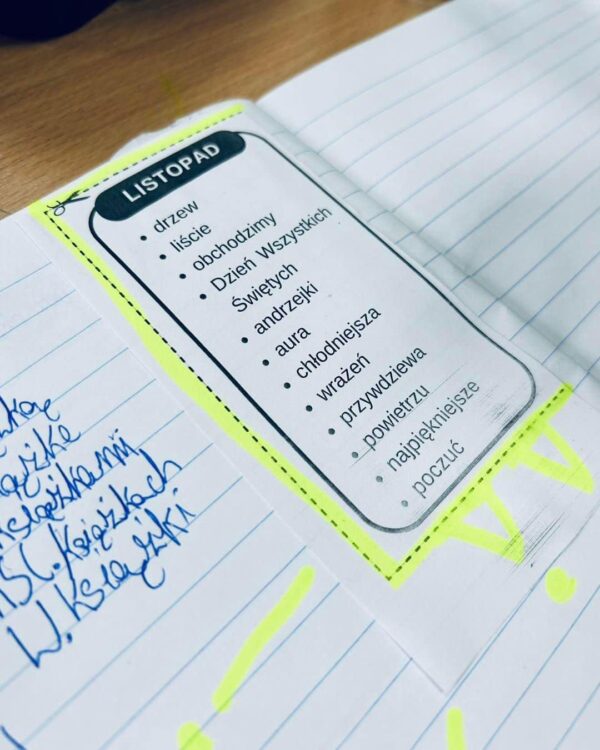 LISTOPAD
• drzew
• liście
• obchodzimy
• Dzień Wszystkich
Świętych
• andrzejki
• aura
• chłodniejsza
• wrażeń
• przywdziewa
• powietrzu
• najpiękniejsze
• poczuć
książkami
Msc. Książkach
W. Książki